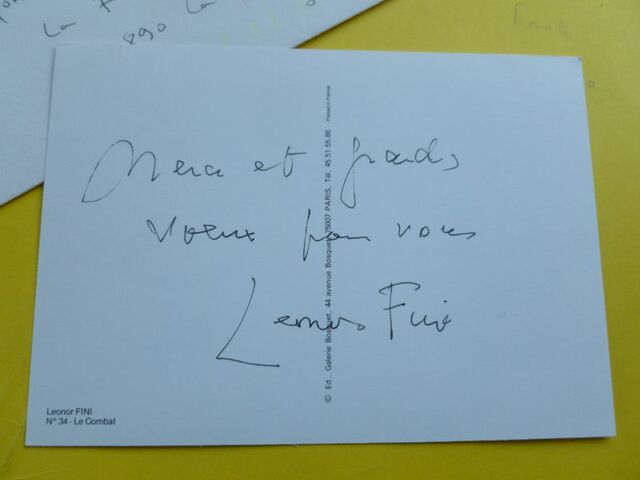 La F
890 La
Merci et grands
vœux pour vous
Leonor Fini
Leonor FINI
N° 34 - Le Combat
© Ed. Galerie Bosquet, 44 avenue Bosquet 75007 PARIS, Tél. 45.51.55.86 Printed in France